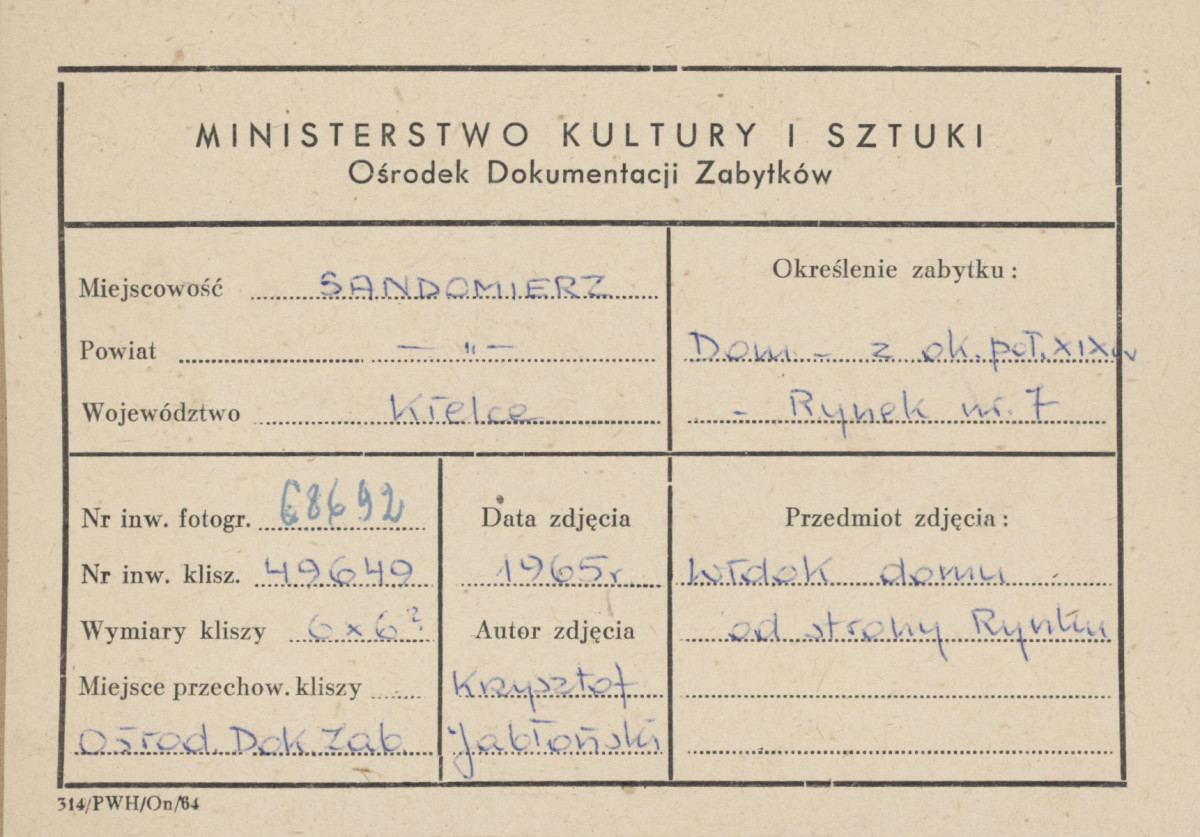 MINISTERSTWO KULTURY I SZTUKI
Ośrodek Dokumentacji Zabytków
Miejscowość SANDOMIERZ
Powiat — " —
Województwo Kielce
Określenie zabytku:
Dom - z ok. poł. XIX w
- Rynek nr. 7
Nr inw. fotogr. 68692
Nr inw. klisz. 49649
Wymiary kliszy 6x6?
Miejsce przechow. kliszy
Ośrod. Dok. Zab.
Data zdjęcia
1965 r.
Autor zdjęcia
Krzysztof
Jabłoński
Przedmiot zdjęcia:
Widok domu
od strony Rynku
314/PWH/On/64